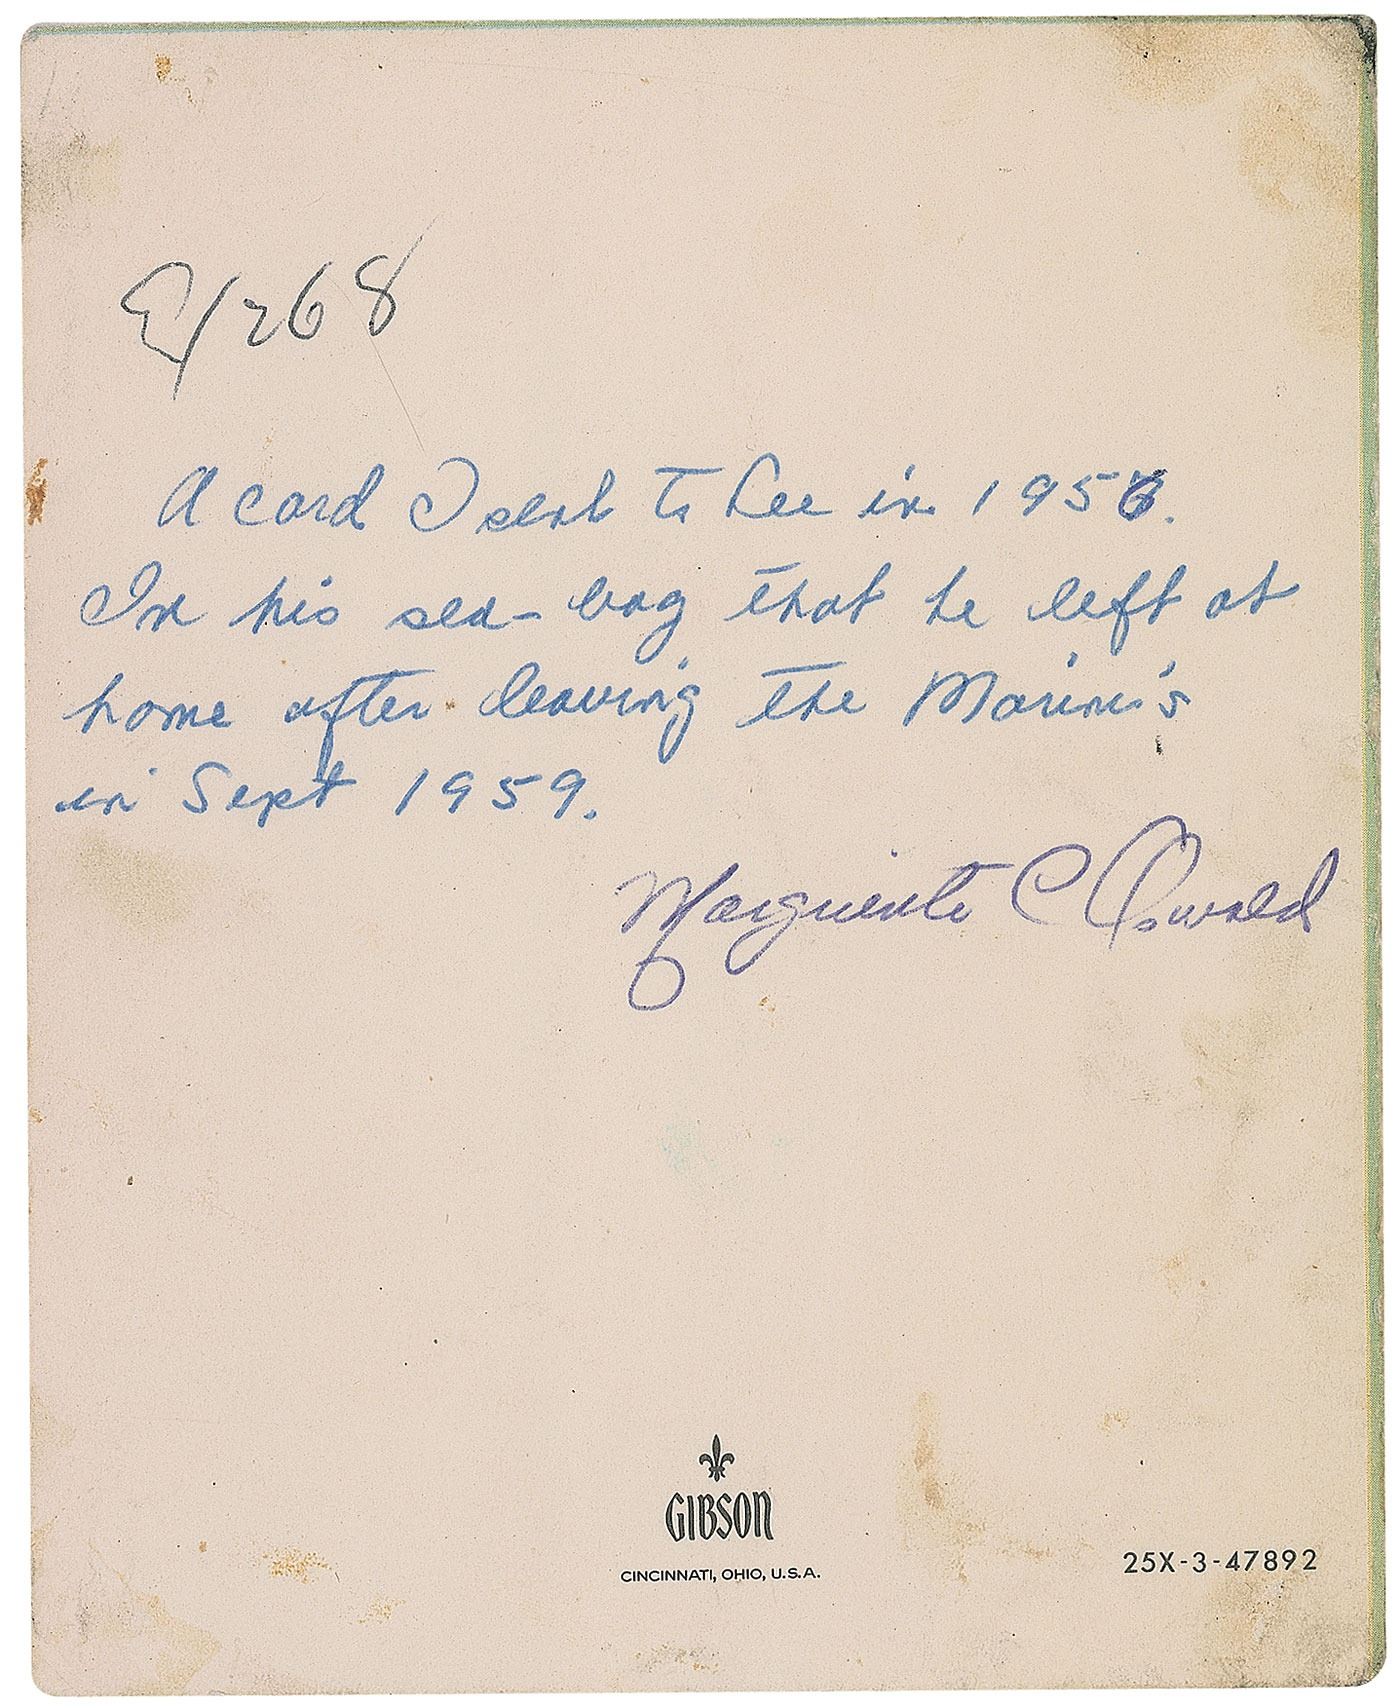 E/268
A card I sent to Lee in 1956.
In his sea-bag that he left at
home after leaving the Marine's
in Sept 1959.
Marguerite C Oswald
GIBSON
CINCINNATI, OHIO, U.S.A.
25X-3-47892